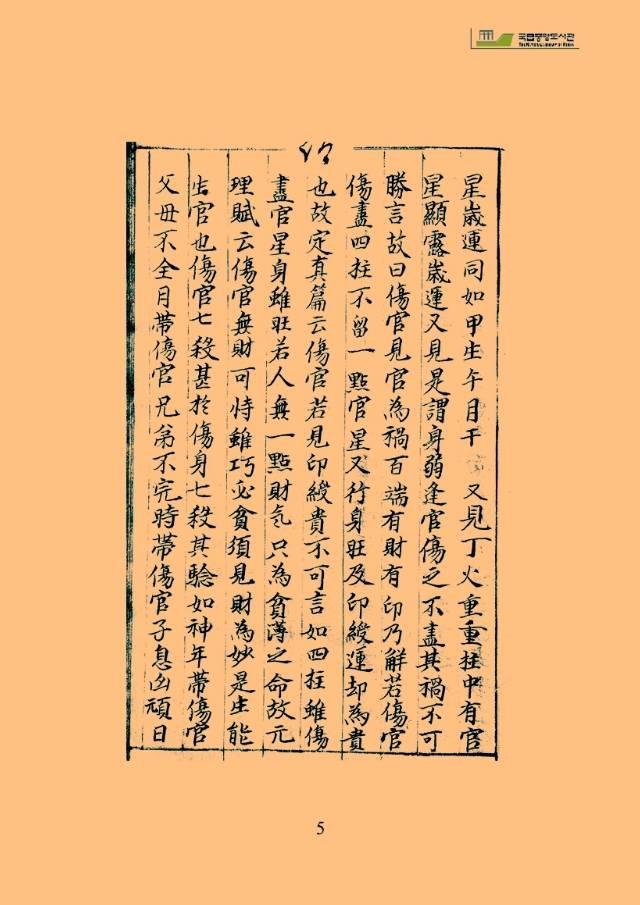 국립중앙도서관
星歲運同如甲生午月干 又見丁火重重拄中有官
星顯露歲運又見是謂身弱逢官傷之不盡其禍不可
勝言故曰傷官見官為禍百端有財有印乃解若傷官
傷盡四拄不留一點官星又行身旺及印綬運却為貴
也故定真篇云傷官若見印綬貴不可言如四拄雖傷
盡官星身雖旺若人無一點財氣只為貧薄之命故元
理賦云傷官無財可恃雖巧必貧須見財為妙是生能
生官也傷官七殺甚於傷身七殺其驗如神年帶傷官
父母不全月帶傷官兄弟不完時帶傷官子息凶頑日
5